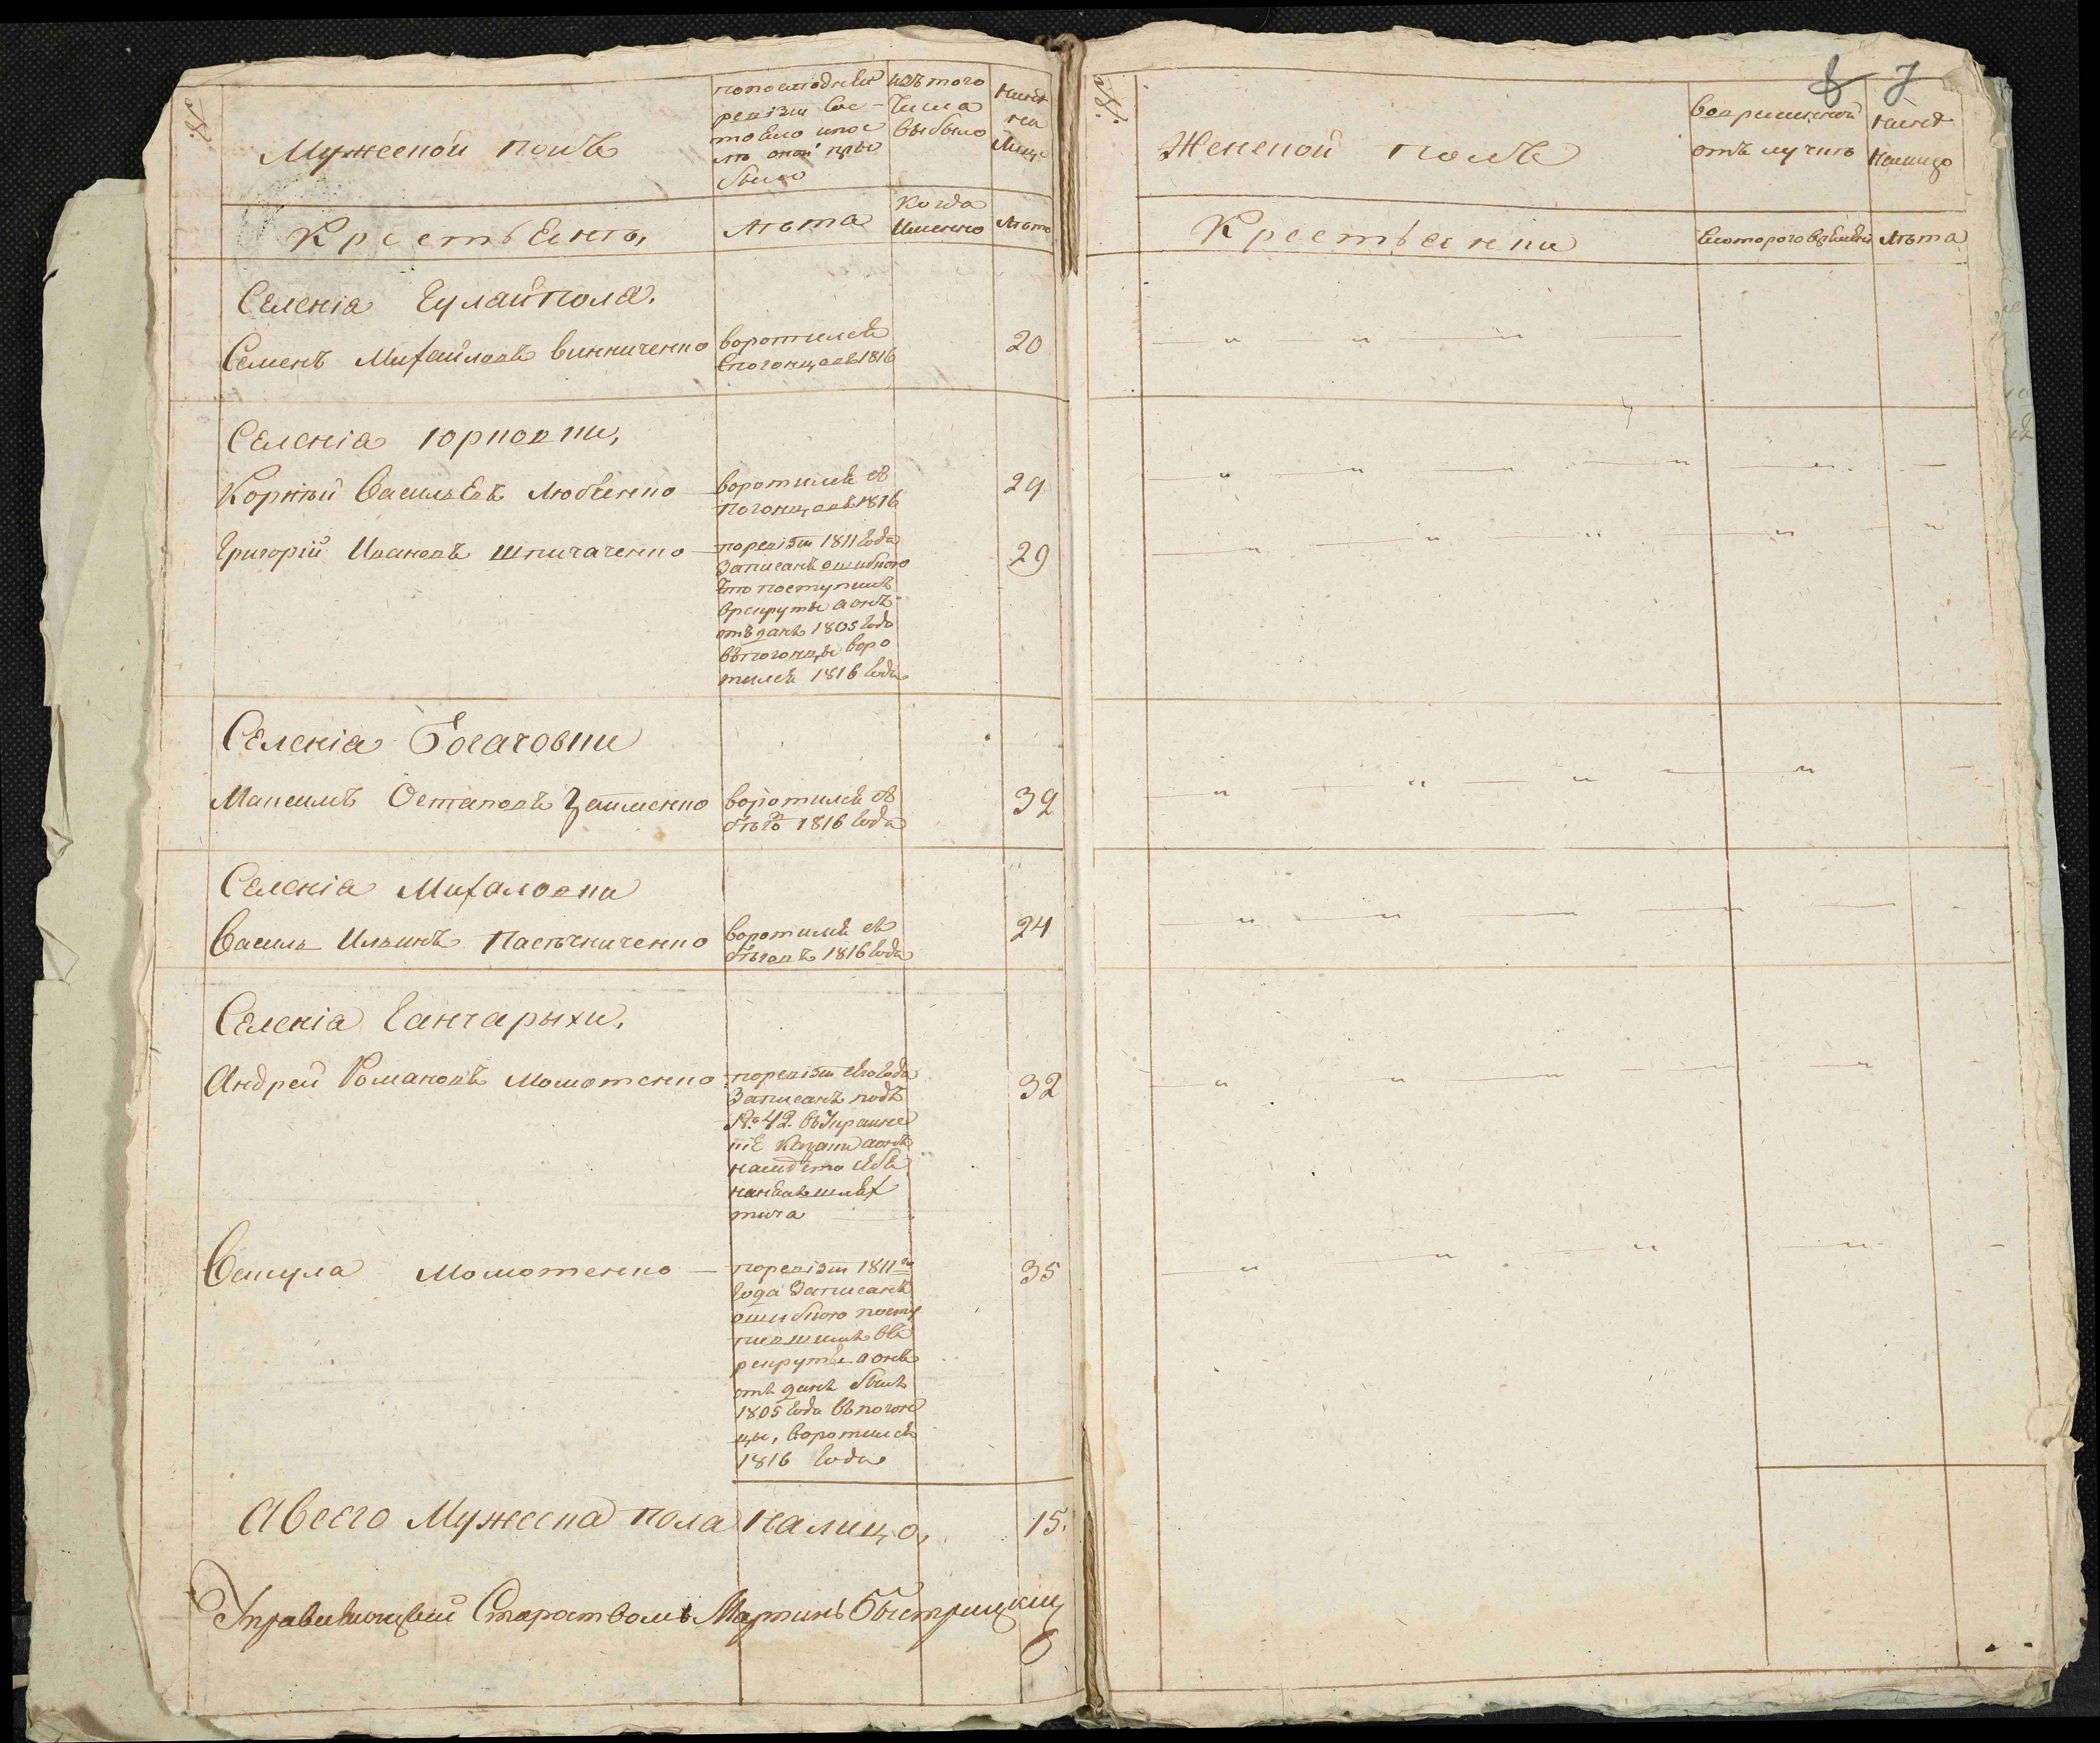 №.
Мужеской полъ
по последней
ревизіи сос-
тояло и пос
лѣ оной при
было
изъ того
числа
выбыло
нынѣ
на
лицо
Крестьянъ,
Лѣта
Когда
именно
Лѣта
Селенія Гулайпола.
Семенъ Михайловъ Винниченко
воротился
с погонцовъ 1816
20
Селенія Юрковки,
Корнѣй Васильевъ Любченко
воротился съ
погонцовъ 1816
29
Григорій Ивановъ Шпичаченко
по ревизіи 1811 года
записанъ ошибкою
что поступилъ
в рекруты а онъ
отъданъ 1805 года
въ погонцы воро
тился 1816 года
29
Селенія Богачовки
Максимъ Остаповъ
воротился съ
бѣговъ 1816 года
39
Селенія Михаловки
Василь Ильинъ Пасѣчниченко
воротился съ
бѣговъ 1816 года
24
Селенія Ганчарыхи,
Андрей Романовъ Момотенко
по ревизіи его года
записанъ подъ
№ 42. въ Украинс
кіе казаки а онъ
32
Вакула Момотенко
по ревизіи 1811го
года записанъ
ошибкою посту
пившимъ въ
рекруты а онъ
отъданъ былъ
1805 года въ погон
цы, воротился
1816 года
35
А всего мужеска пола налицо,
15.
Управляющій Староствомъ Мартинъ Быстрицкій
6
8 7
№.
Женской полъ
во временной
отълучкѣ
нынѣ
налицо
Крестьянки
с котораго времѣни
Лѣта